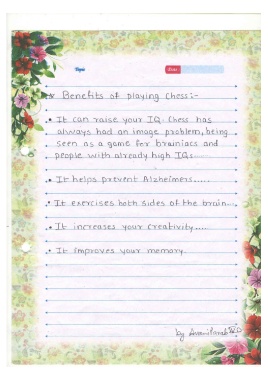 Topic
Date:
* Benefits of playing Chess:-
• It can raise your IQ. Chess has
always had an image problem, being
seen as a game for brainiacs and
people with already high IQs......
• It helps prevent Alzheimers.....
• It exercises both sides of the brain...
• It increases your creativity.....
• It improves your memory.
by